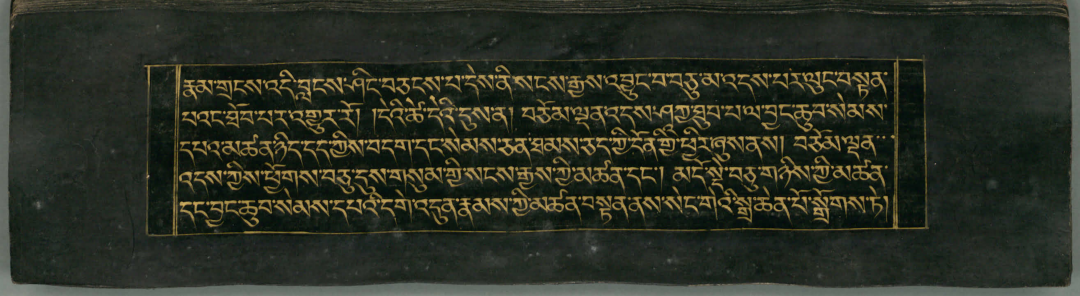 རྣམ་གྲངས་འདི་བླངས་ཤིང་བཅངས་པ་དེས་ནི་སངས་རྒྱས་འབྱུང་བ་བཅུ་མ་འདས་པར་ལུང་བསྟན་
པའང་ཐོབ་པར་འགྱུར་རོ། །དེའི་ཚེ་དེའི་དུས་ན། བཅོམ་ལྡན་འདས་ཤཀྱ་ཐུབ་པ་ལ་བྱང་ཆུབ་སེམས་
དཔའ་མཚན་ཉིད་དད་ཀྱིས་བདག་དང་སེམས་ཅན་ཐམས་ཅད་ཀྱི་དོན་གྱི་ཕྱིར་ཞུས་ནས། བཅོམ་ལྡན་
འདས་ཀྱིས་ཕྱོགས་བཅུ་དུས་གསུམ་གྱི་སངས་རྒྱས་ཀྱི་མཚན་དང་། མདོ་སྡེ་བཅུ་གཉིས་ཀྱི་མཚན་
དང་བྱང་ཆུབ་སེམས་དཔའི་དགེ་འདུན་རྣམས་ཀྱི་མཚན་བསྟན་ནས་སེང་གེའི་སྒྲ་ཆེན་པོ་སྒྲོགས་ཏེ།